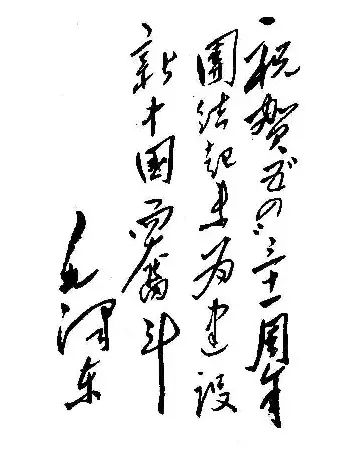 祝賀五四三十一周年
團結起来为建設
新中國而奮斗
毛澤东